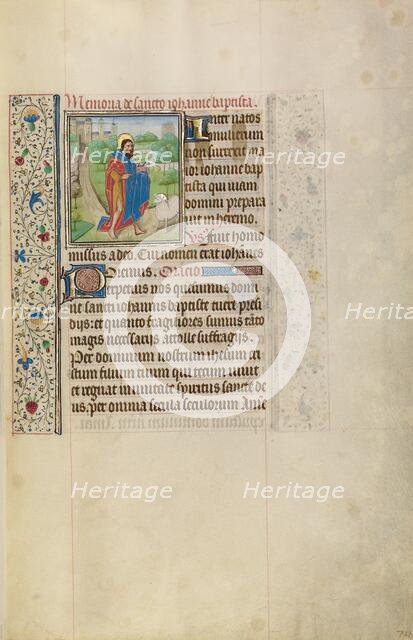 Memoria de sancto iohanne baptista.
Inter natos
mulierum
non surrexit ma
ior iohanne bap
tista qui uiam
domini prepara
uit in heremo.
Vs fuit homo
missus a deo. Cui nomen erat iohānes
Oremus. Oracio
Perpetuis nos quesumus domi
ne sancti iohannis baptiste tueri presi
dijs: et quanto fragiliores sumus tāto
magis necessarijs attolle suffragijs.
Per dominum nostrum ihesum cri
stum filium tuum qui tecum uiuit
et regnat in unitate spiritus sancti de
us. per omnia secula seculorum Amē
Heritage
Heritage
Heritage
Heritage
Heritage
Heritage